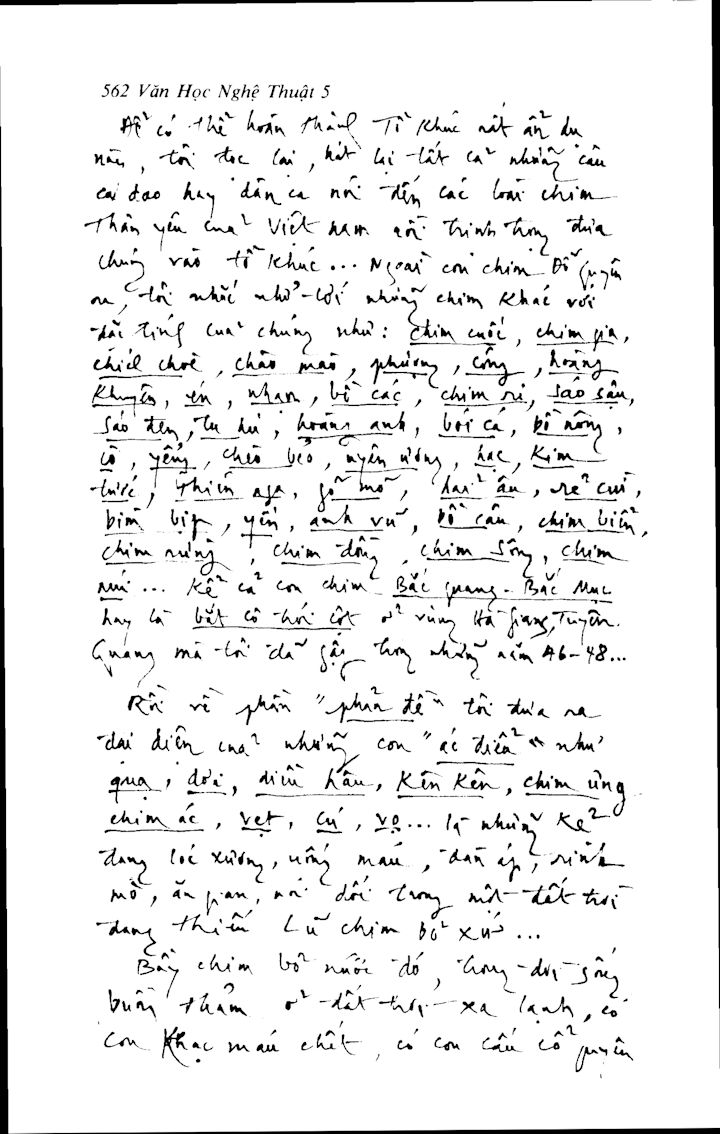 562 Văn Học Nghệ Thuật 5
Để có thể hoàn thành Tổ Khúc rất ẩn dụ
này, tôi đọc lại, hát lại tất cả những câu
ca dao hay dân ca nói đến các loài chim
Thân yêu của Việt Nam rồi trịnh trọng đưa
chúng vào tổ khúc... Ngoài con chim Đỗ Quyên
ra, tôi nhắc nhở tới những chim khác với
đặc tính của chúng như: chim cuốc, chim gia,
chích choè, chào mào, phượng, công, hoàng
Khuyên, én, nhạn, bồ các, chim ri, sáo sậu,
sáo đen, tu hú, hoàng anh, bói cá, bồ nông,
cò, yểng, chèo bẻo, uyên ương, hạc, Kim
tước, thiên nga, gõ mõ, hải âu, sẻ cưi,
bìm bịp, yến, anh vũ, bồ câu, chim biển,
chim rừng, chim đồng, chim sông, chim
núi... Kể cả con chim Bắc quang - Bắc Mục
hay là bắt cô trói cột ở vùng Hà Giang, Tuyên
Quang mà tôi đã gặp trong những năm 46-48...
Rồi về phần "phản đề" tôi đưa ra
đại diện của những con "ác điểu" như
quạ, dơi, diều hâu, Kên Kên, chim ưng
chim ác, vẹt, cú, vọ... là những kẻ
đang lóc xương, uống máu, đàn áp, rình
mò, ăn gian, nói dối trong một đất trời
đang thiếu Lũ chim bỏ xứ...
Bầy chim bỏ nước đó, trong đời sống
buồn thảm ở đất trời xa lạnh, có
con Khạc máu chết, có con cấu cổ quyên